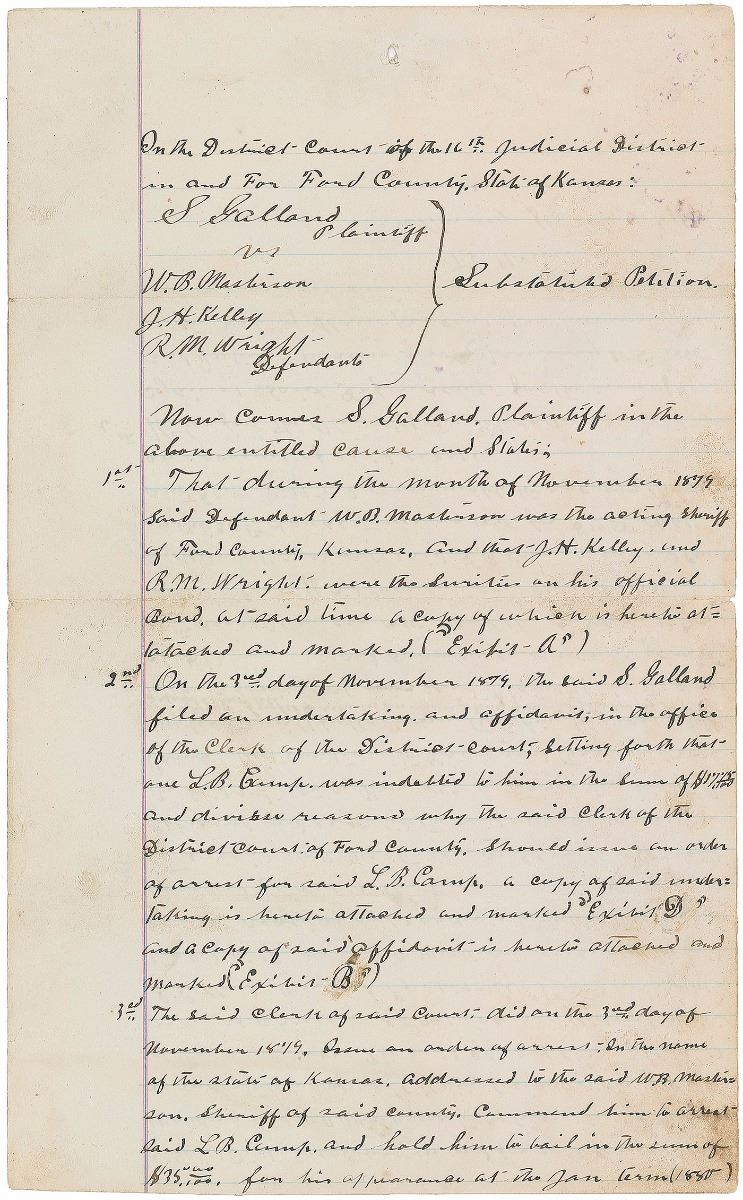 In the District Court of the 16th. Judicial District
in and For Ford County, State of Kansas:
S Galland
Plaintiff
vs
W. B. Masterson
J. H. Kelley
R. M. Wright
Defendants
Substatuted Petition.
Now comes S. Galland. Plaintiff in the
above entitled cause and States;
1st That during the month of November 1879
said Defendant W. B. Masterson was the acting Sheriff
of Ford County, Kansas, and that J. H. Kelley. and
R. M. Wright. were the surities on his official
Bond. at said time a copy of which is hereto at=
tatached and marked, ("Exibit A")
2nd On the 3red day of November 1879. the said S. Galland
filed an undertaking. and affidavit, in the office
of the Clerk of the District Court, setting forth that
one L. B. Camp. was indebted to him in the sum of
and diverse reasons why the said Clerk of the
District Court. of Ford County, should issue an order
of arrest for said L. B. Camp. a copy of said under=
taking is hereto attached and marked "Exibit D"
and a copy of said affidavit is hereto attached and
marked ("Exibit B")
3ed The said Clerk of said Court. did on the 3red day of
November 1879. Issue an order of arrest. In the name
of the state of Kansas, addressed to the said W. B. Master=
son. Sheriff of said County. Command him to arrest
said L. B. Camp. and hold him to bail in the sum of
$35 00/100. for his appearance at the Jan term (1880)